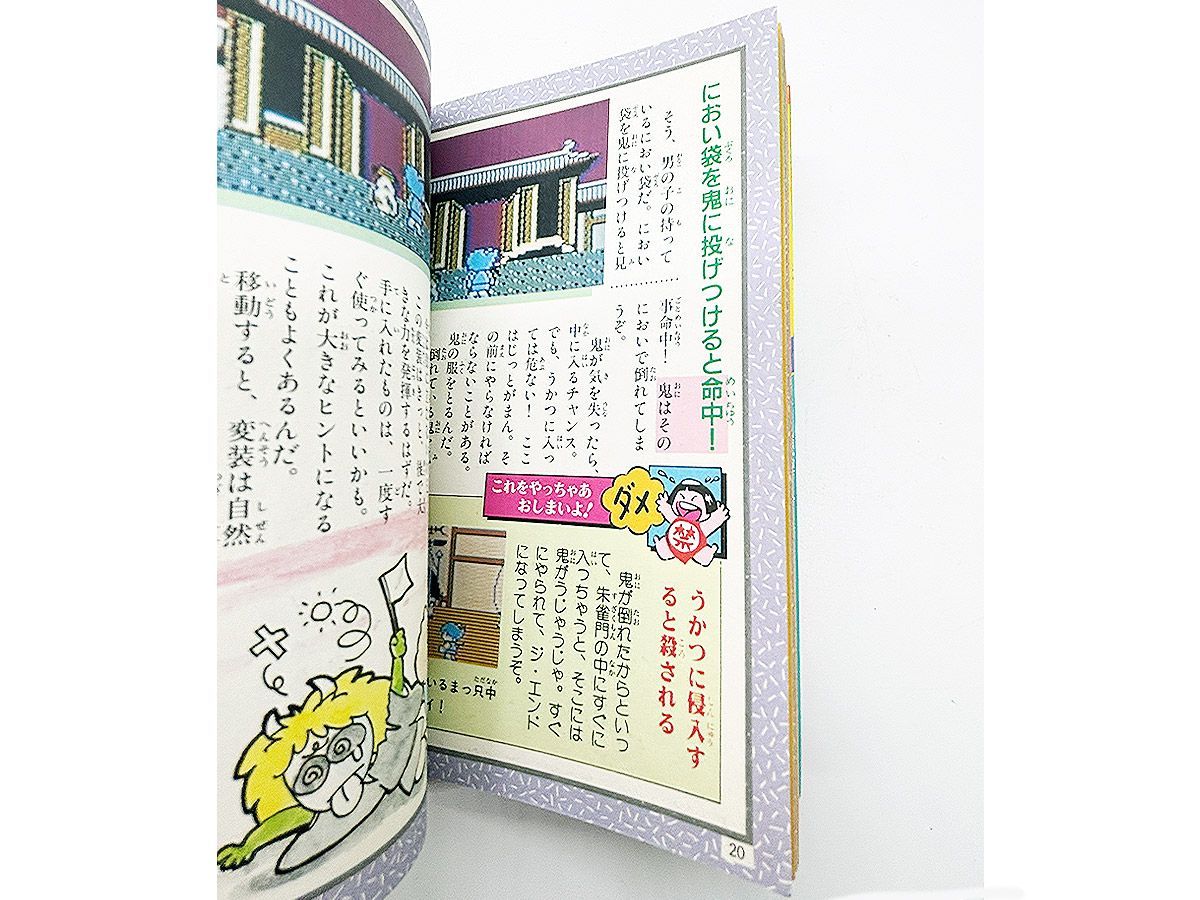 におい袋を鬼に投げつけると命中！
そう、男の子の持って
いるにおい袋だ。におい
袋を鬼に投げつけると見
事命中！　鬼はその
においで倒れてしま
うぞ。
鬼が気を失ったら、
中に入るチャンス。
でも、うかつに入っ
ては危ない！　ここ
はじっとがまん。そ
の前にやらなければ
ならないことがある。
鬼の服をとるんだ。
これをやっちゃあ
おしまいよ！
ダメ
禁
うかつに侵入す
ると殺される
鬼が倒れたからといっ
て、朱雀門の中にすぐに
入っちゃうと、そこには
鬼がうじゃうじゃ。すぐ
にやられて、ジ・エンド
になってしまうぞ。
いるまっ只中
イ！
20
きな力を発揮するはずだ。
手に入れたものは、一度す
ぐ使ってみるといいかも。
これが大きなヒントになる
こともよくあるんだ。
移動すると、変装は自然